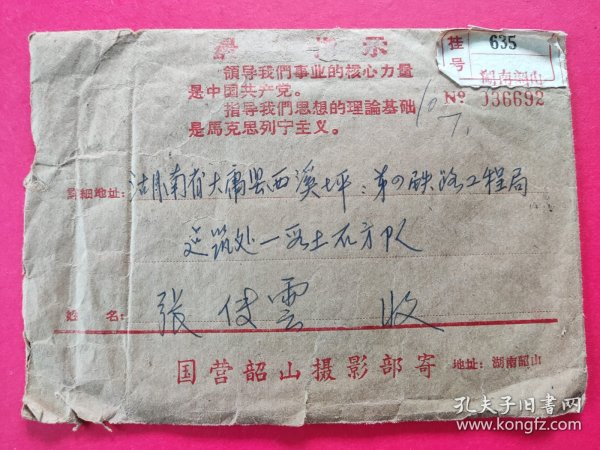 最 指 示
領导我們事业的核心力量
是中国共产党。
指导我們思想的理論基础
是馬克思列宁主义。
挂号
635
湖南韶山
№ 036692
詳細地址:湖南省大庸县西溪坪:第四铁路工程局
建筑处一段土石方队
姓 名: 张 传 雲 收
国营韶山摄影部寄 地址:湖南韶山
孔夫子旧書网
www.kongfz.com